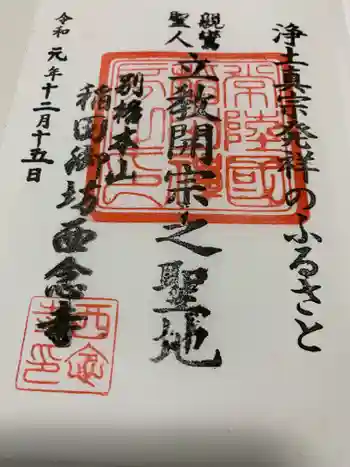 浄土真宗発祥のふるさと
親鸞
聖人
立教開宗之聖地
別格本山
稲田御坊西念寺
令和元年十二月十五日
西念
寺印